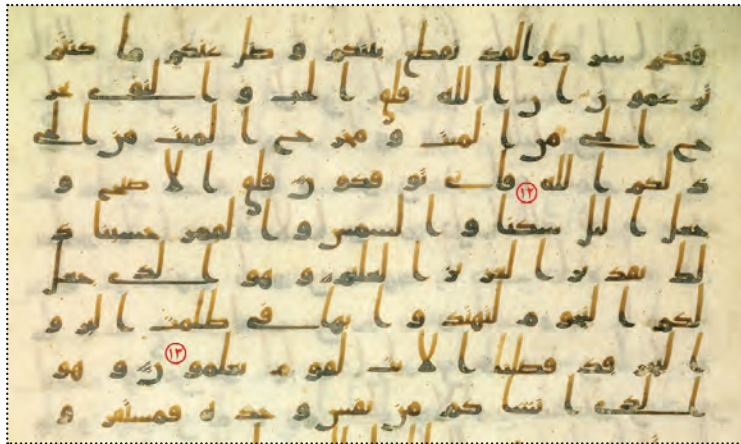 فيكم شركوا لقد تقطع بينكم و ضل عنكم ما كنتم
تزعمون ان الله فلق الحب و النوى يخر
ج الحي من الميت و مخرج الميت من الحي
ذلكم الله ١٢ فانى توفكون فلق الاصبح و
جعل اليل سكنا و الشمس و القمر حسبنا ذ
لك تقدير العزيز العليم و هو الذي جعل
لكم النجوم لتهتدوا بها في ظلمت البر و
البحر قد فصلنا الايت لقوم يعلمون ١٣ و هو
الذي انشاكم من نفس وحدة فمستقر و